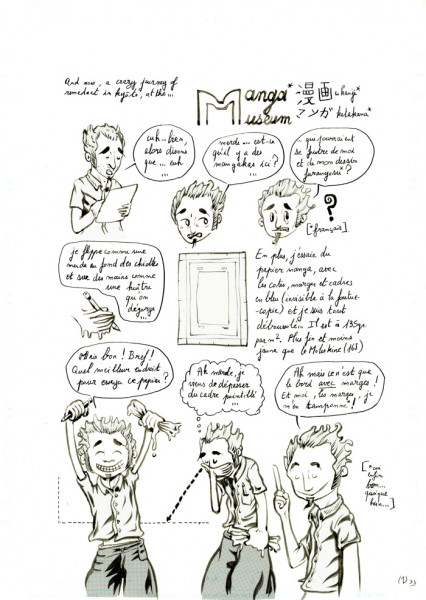 And now, a crazy journey of
remedact in Kyôto, at the...
Manga*
Museum
漫画 *kanji*
マンガ katakana*
euh... bien
alors disons
que... euh
...
merde... est-ce
qu'il y a des
mangakas ici ?
qui pourraient
se foutre de moi
et de mon dessin
?
?
[*français]
je flippe comme une
merde au fond des chiottes
et sue des mains comme
une huître
qu'on
dégorge
...
En plus, j'essaie du
papier manga, avec
les cotes, marges et cadres
en bleu (invisible à la photo-
copie) et je suis tout
déboussolé... Il est à 135gr
par m². Plus fin et moins
jaune que le Moleskine (165)
Mais bon ! Bref !
Quel meilleur endroit
pour essayer ce papier ?
Ah merde, je
viens de dépasser
du cadre pointillé
...
Ah mais ce n'est que
le bord avec marges !
Et moi, les marges, je
m'en tamponne !
[*oui
enfin
bon...
quoique
hein...]
(1)